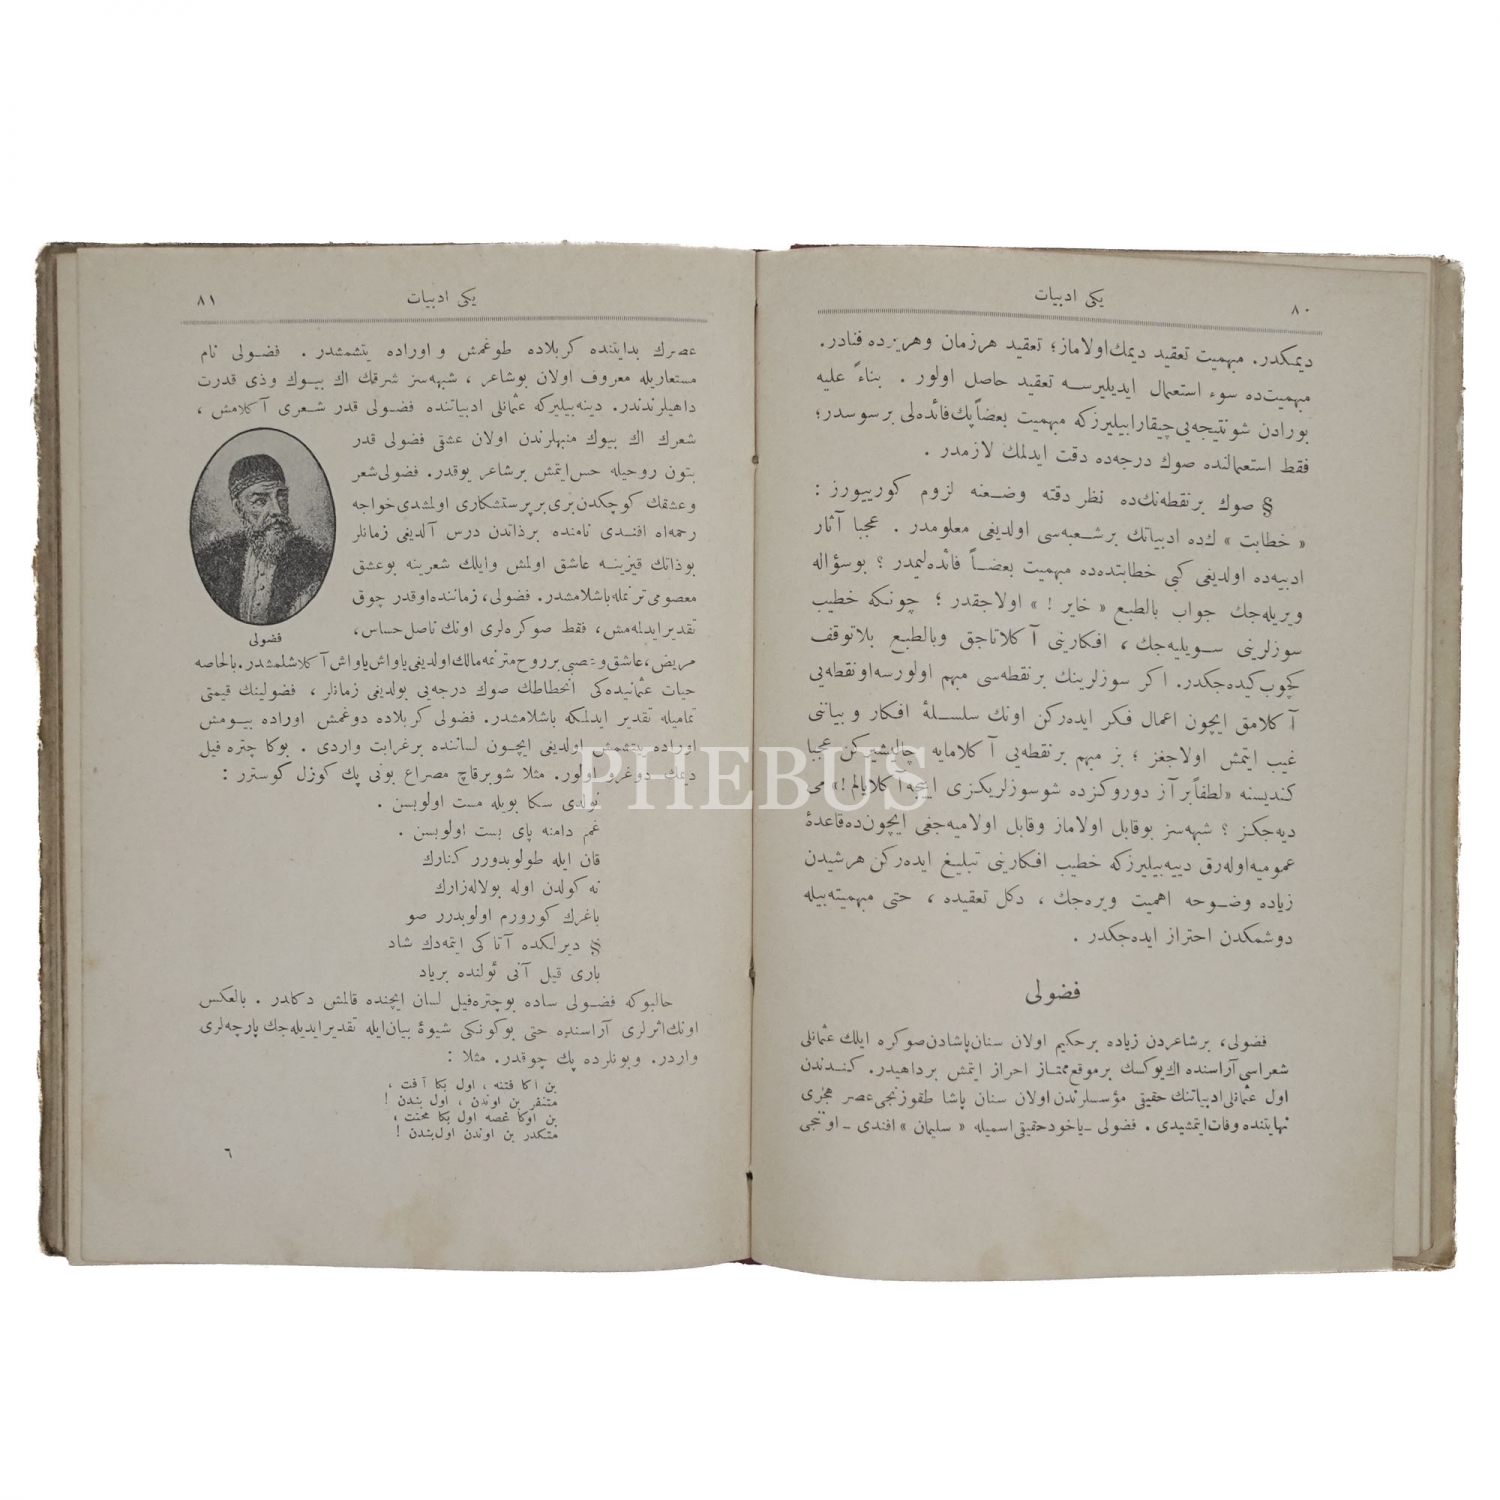 ٨٠
یکی ادبیات
دیمکدر. مبهمیت تعقید دیمك اولاماز؛ تعقید هرزمان وهریرده فنادر.
مبهمیت‌ده سوء استعمال ایدیلیرسه تعقید حاصل اولور . بناءً علیه
بورادن شو نتیجه‌یی چیقارابیلیرزکه مبهمیت بعضاً پك فائده‌لی برسوسدر؛
فقط استعمالنده صوك درجه‌ده دقت ایدلمك لازمدر .
§ صوك برنقطه‌نك‌ده نظر دقته وضعنه لزوم کورییورز :
« خطابت » ك‌ده ادبیاتك برشعبه‌سی اولدیغی معلومدر . عجبا آثار
ادبیه‌ده اولدیغی کبی خطابتده‌ده مبهمیت بعضاً فائده‌لیمیدر ؟ بوسؤاله
ویریله‌جك جواب بالطبع « خایر ! » اولاجقدر ؛ چونکه خطیب
سوزلرینی سویلیه‌جك ، افکارینی آکلاتاجق وبالطبع بلاتوقف
کچوب کیده‌جکدر. اکر سوزلرینك برنقطه‌سی مبهم اولورسه اونقطه‌یی
آکلامق ایچون اعمال فکر ایده‌رکن اونك سلسلهٔ افکار و بیاننی
غیب ایتمش اولاجغز ؛ بز مبهم برنقطه‌یی آکلامایه چالیشیرکن عجبا
کندیسنه «لطفاً برآز دوروکزده شوسوزلریکزی اییجه آکلایالم !» می
دیه‌جکز ؟ شبهه‌سز بوقابل اولاماز وقابل اولامیه‌جغی ایچون‌ده قاعدهٔ
عمومیه اوله‌رق دییه‌بیلیرزکه خطیب افکارینی تبلیغ ایده‌رکن هرشیدن
زیاده وضوحه اهمیت ویره‌جك ، دکل تعقیده ، حتی مبهمیته‌بیله
دوشمکدن احتراز ایده‌جکدر .
فضولی
فضولی، برشاعردن زیاده برحکیم اولان سنان پاشادن صوکره ایلك عثمانلی
شعراسی آراسنده اك یوکسك برموقع ممتاز احراز ایتمش برداهیدر. کندندن
اول عثمانلی ادبیاتنك حقیقی مؤسسلرندن اولان سنان پاشا طقوزنجی عصر هجری
نهایتنده وفات ایتمشیدی . فضولی ـ یاخود حقیقی اسمیله « سلیمان » افندی ـ اوننجی
یکی ادبیات
٨١
عصرك بدایتنده کربلاده طوغمش و اوراده یتشمشدر . فضولی نام
مستعاریله معروف اولان بوشاعر ، شبهه‌سز شرقك اك بیوك وذی قدرت
داهیلرندندر. دینه‌بیلیرکه عثمانلی ادبیاتنده فضولی قدر شعری آکلامش ،
شعرك اك بیوك منبهلرندن اولان عشقی فضولی قدر
بتون روحیله حس ایتمش برشاعر یوقدر. فضولی شعر
وعشقك کوچکدن‌بری بر پرستشکاری اولمشدی خواجه
رحمه‌اه افندی نامنده برذاتدن درس آلدیغی زمانلر
بوذاتك قیزینه عاشق اولمش وایلك شعرینه بوعشق
معصومی ترنمله باشلامشدر. فضولی، زماننده اوقدر چوق
تقدیر ایدلمه‌مش، فقط صوکره‌لری اونك ناصل حساس،
فضولی
مریض، عاشق وعصبی برروح مترنمه مالك اولدیغی یاواش یاواش آکلاشلمشدر. بالخاصه
حیات عثمانیه‌ده‌کی انحطاطك صوك درجه‌یی بولدیغی زمانلر ، فضولینك قیمتی
تمامیله تقدیر ایدلمکه باشلامشدر. فضولی کربلاده دوغمش اوراده بیومش
اوراده یتشمش اولدیغی ایچون لساننده برغرابت واردی . بوکا چتره‌فیل
دیمك دوغرو اولور. مثلا شوبرقاچ مصراع بونی پك کوزل کوسترر :
نولدی سکا بویله مست اولوبسن .
غم دامنه پای بست اولوبسن .
قان ایله طولوبدورر کنارك
نه کولدن اوله بولاله‌زارك
باغرك کورورم اولوبدرر صو
§ دیرلکده آتاکی ایتمه‌دك شاد
باری قیل آنی ئولنده بریاد
حالبوکه فضولی ساده بوچتره‌فیل لسان ایچنده قالمش دکلدر . بالعکس
اونك اثرلری آراسنده حتی بوکونکی شیوهٔ بیان ایله تقدیر ایدیله‌جك پارچه‌لری
واردر. وبونلرده پك چوقدر. مثلا :
بن اکا فتنه ، اول بکا آفت ،
متنفر بن اوندن ، اول بندن !
بن اوکا غصه اول بکا محنت ،
متکدر بن اوندن اول بندن !
٦
PHEBUS